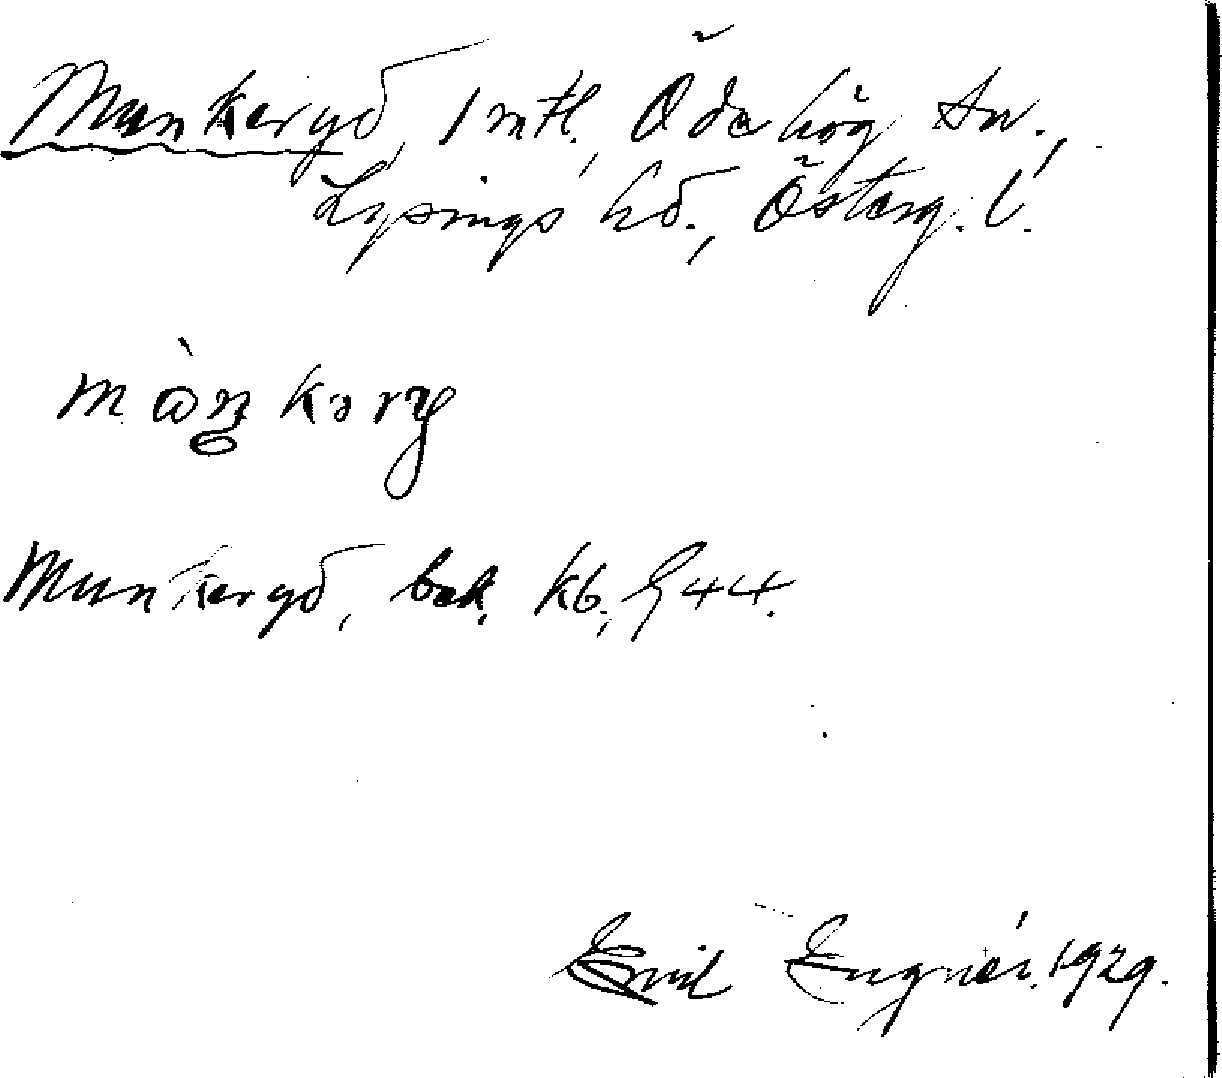 Munkeryd, 1 mtl., Ödeshög sn.,
Lysings hd., Österg. l.
Munkeryd, bek. Kb.,
Emil Engnér. 1929.